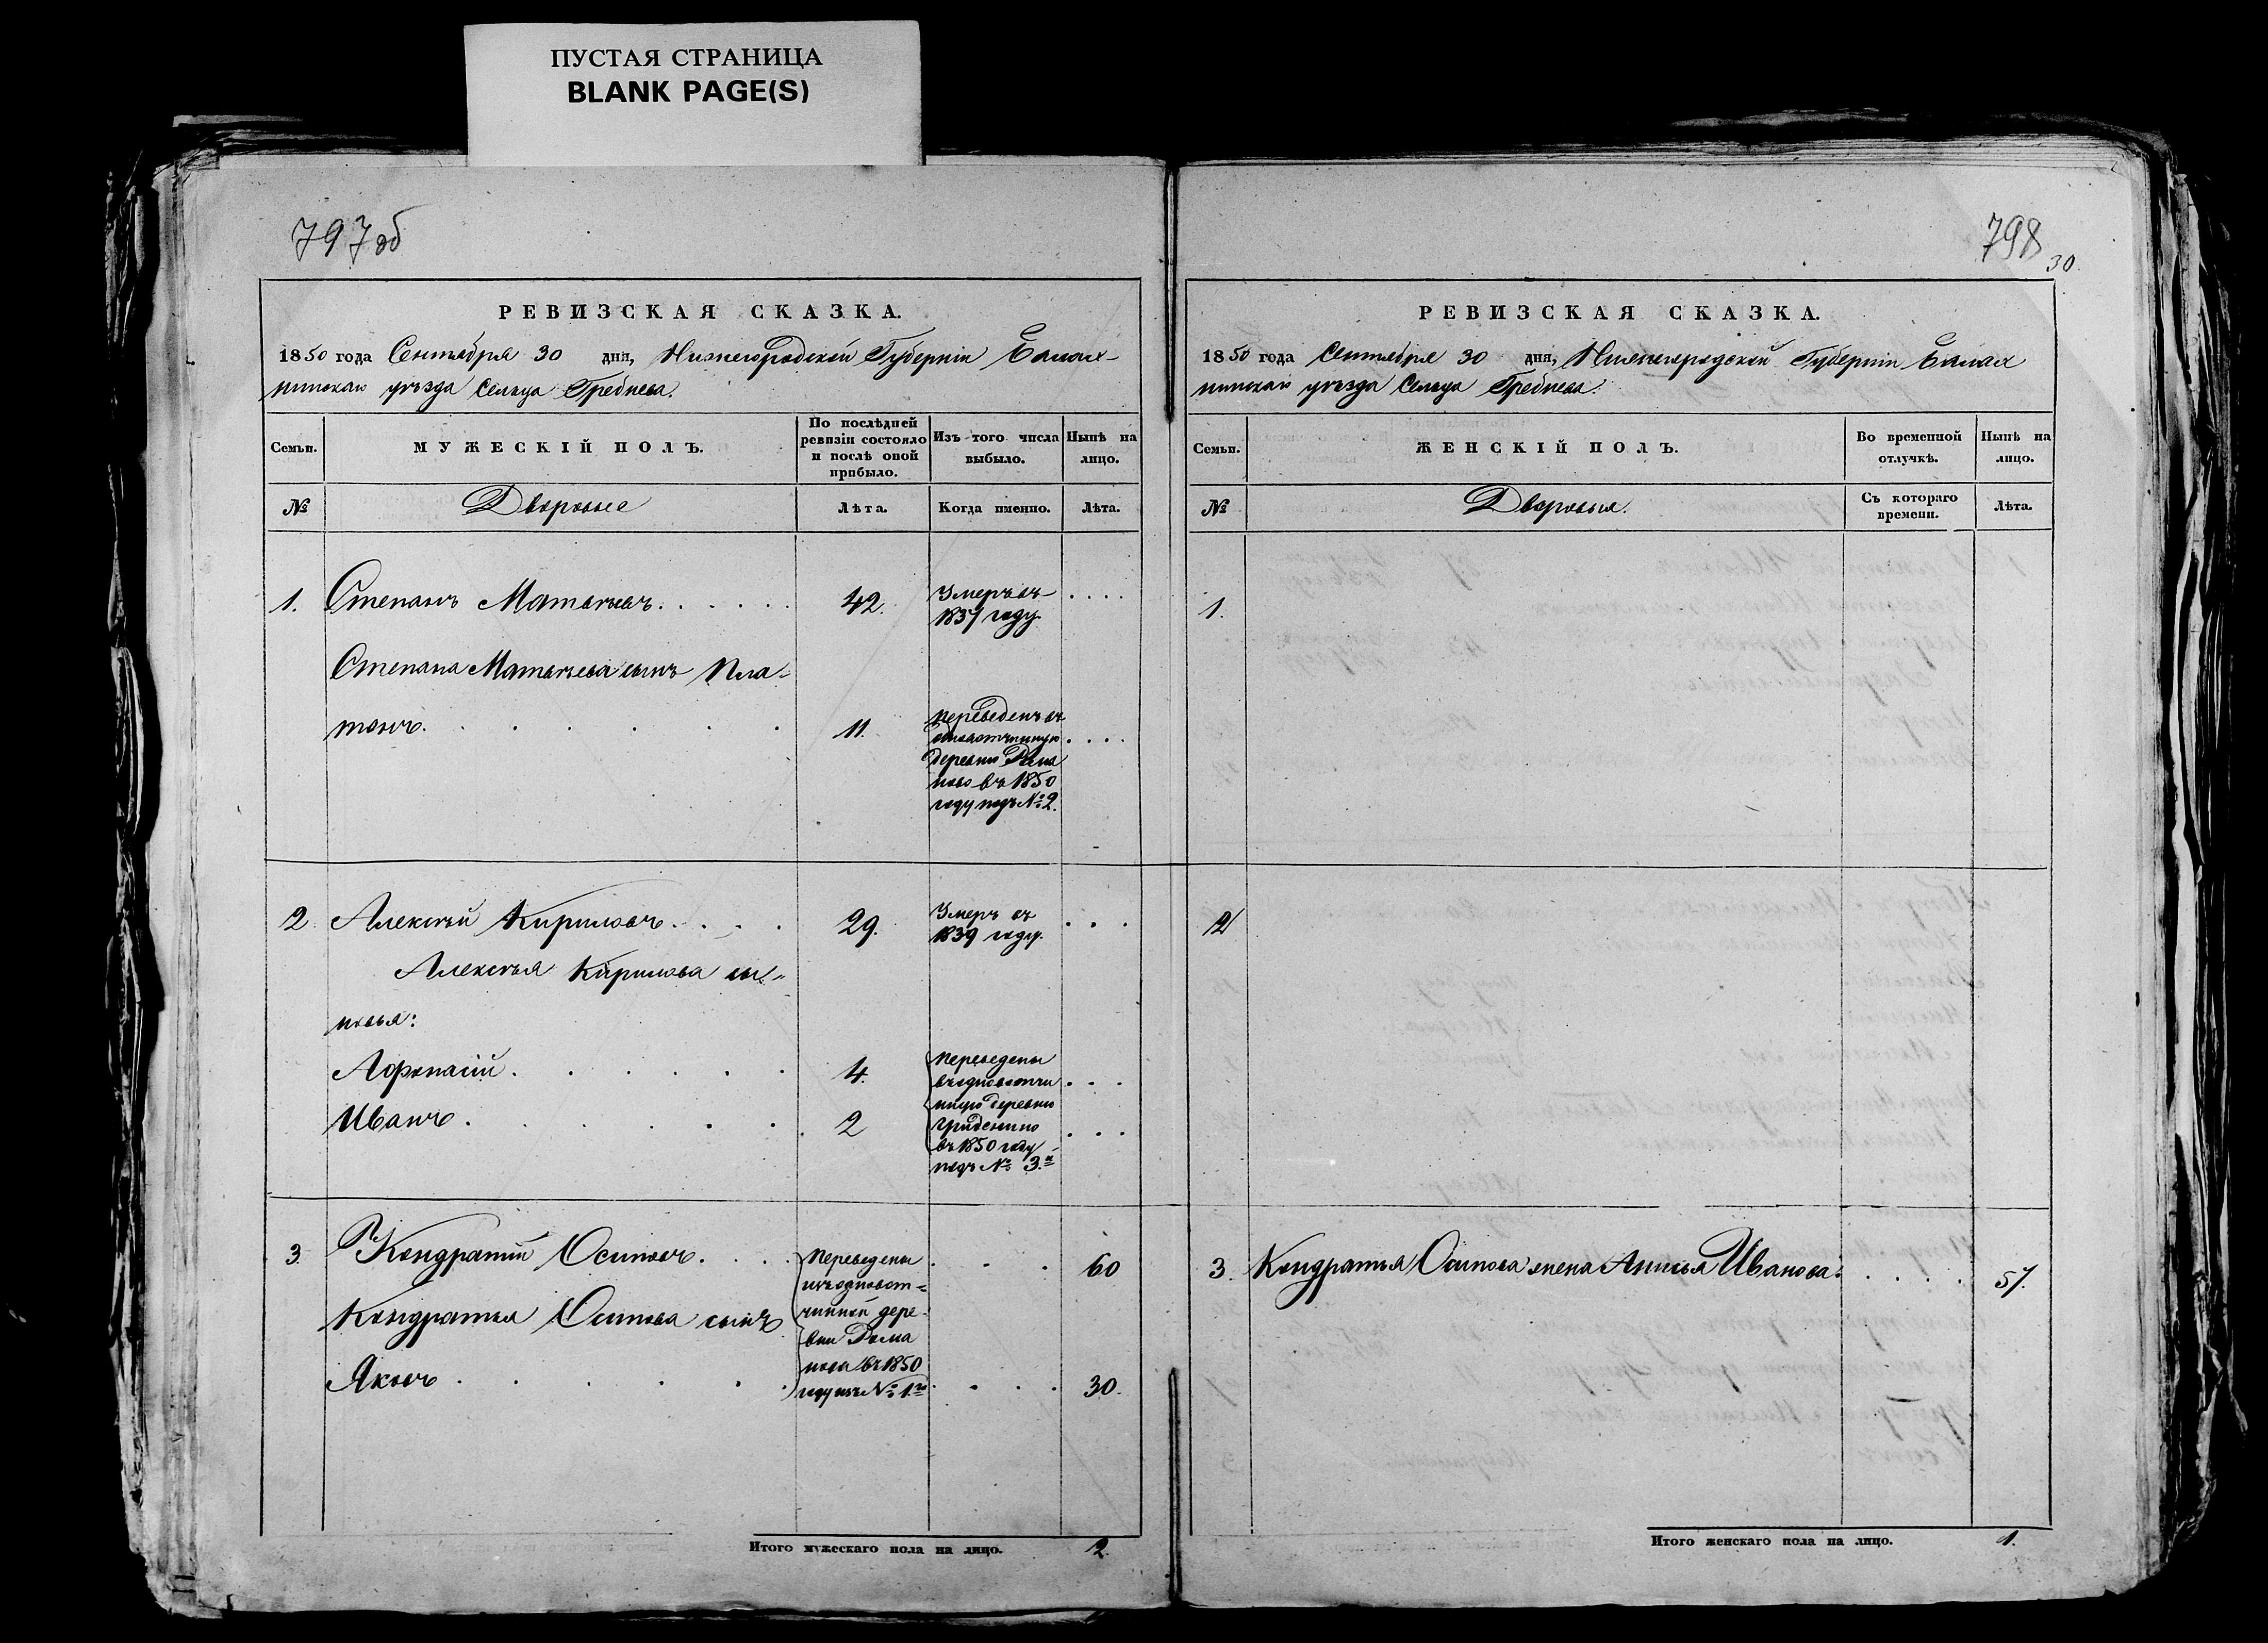 ПУСТАЯ СТРАНИЦА
BLANK PAGE(S)
797об
РЕВИЗСКАЯ СКАЗКА.
1850 года Сентября 30 дня, Нижегородской Губерніи Балах-
нинскаго уѣзда Сельца Гребнева.
Семьи.
МУЖЕСКІЙ ПОЛЪ.
По послѣдней
ревизіи состояло
и послѣ оной
прибыло.
Изъ того числа
выбыло.
Нынѣ на
лицо.
№
Дворовые
Лѣта.
Когда именно.
Лѣта.
1. Степанъ Матвѣевъ. 42. Умеръ въ
1837 году
Степана Матвѣева сынъ Пла-
тонъ. 11. переведенъ въ
одновотчинную
деревню Дома
ново въ 1850
году подъ № 2.
2 Алексѣй Кириловъ. 29. Умеръ въ
1839 году.
Алексѣя Кирилова сы-
новья:
Афонасій. 4. переведены
въ одновотчи
нную деревню
Гриденино
въ 1850 году
подъ № 3.й
Иванъ. 2
3. Кондратій Осиповъ. 60
переведены
изъ одновот-
чинной дере-
вни Дома
нова въ 1850
году изъ № 1го
Кондратья Осипова сынъ
Яковъ. 30.
Итого мужескаго пола на лицо. 2.
798
30.
РЕВИЗСКАЯ СКАЗКА.
1850 года Сентября 30 дня, Нижегородской Губерніи Балах
нинскаго уѣзда Сельца Гребнева.
Семьи.
ЖЕНСКІЙ ПОЛЪ.
Во временной
отлучкѣ.
Нынѣ на
лицо.
№
Дворовыя.
Съ котораго
времени.
Лѣта.
1.
2
3. Кондратья Осипова жена Анисья Иванова. 57.
Итого женскаго пола на лицо. 1.